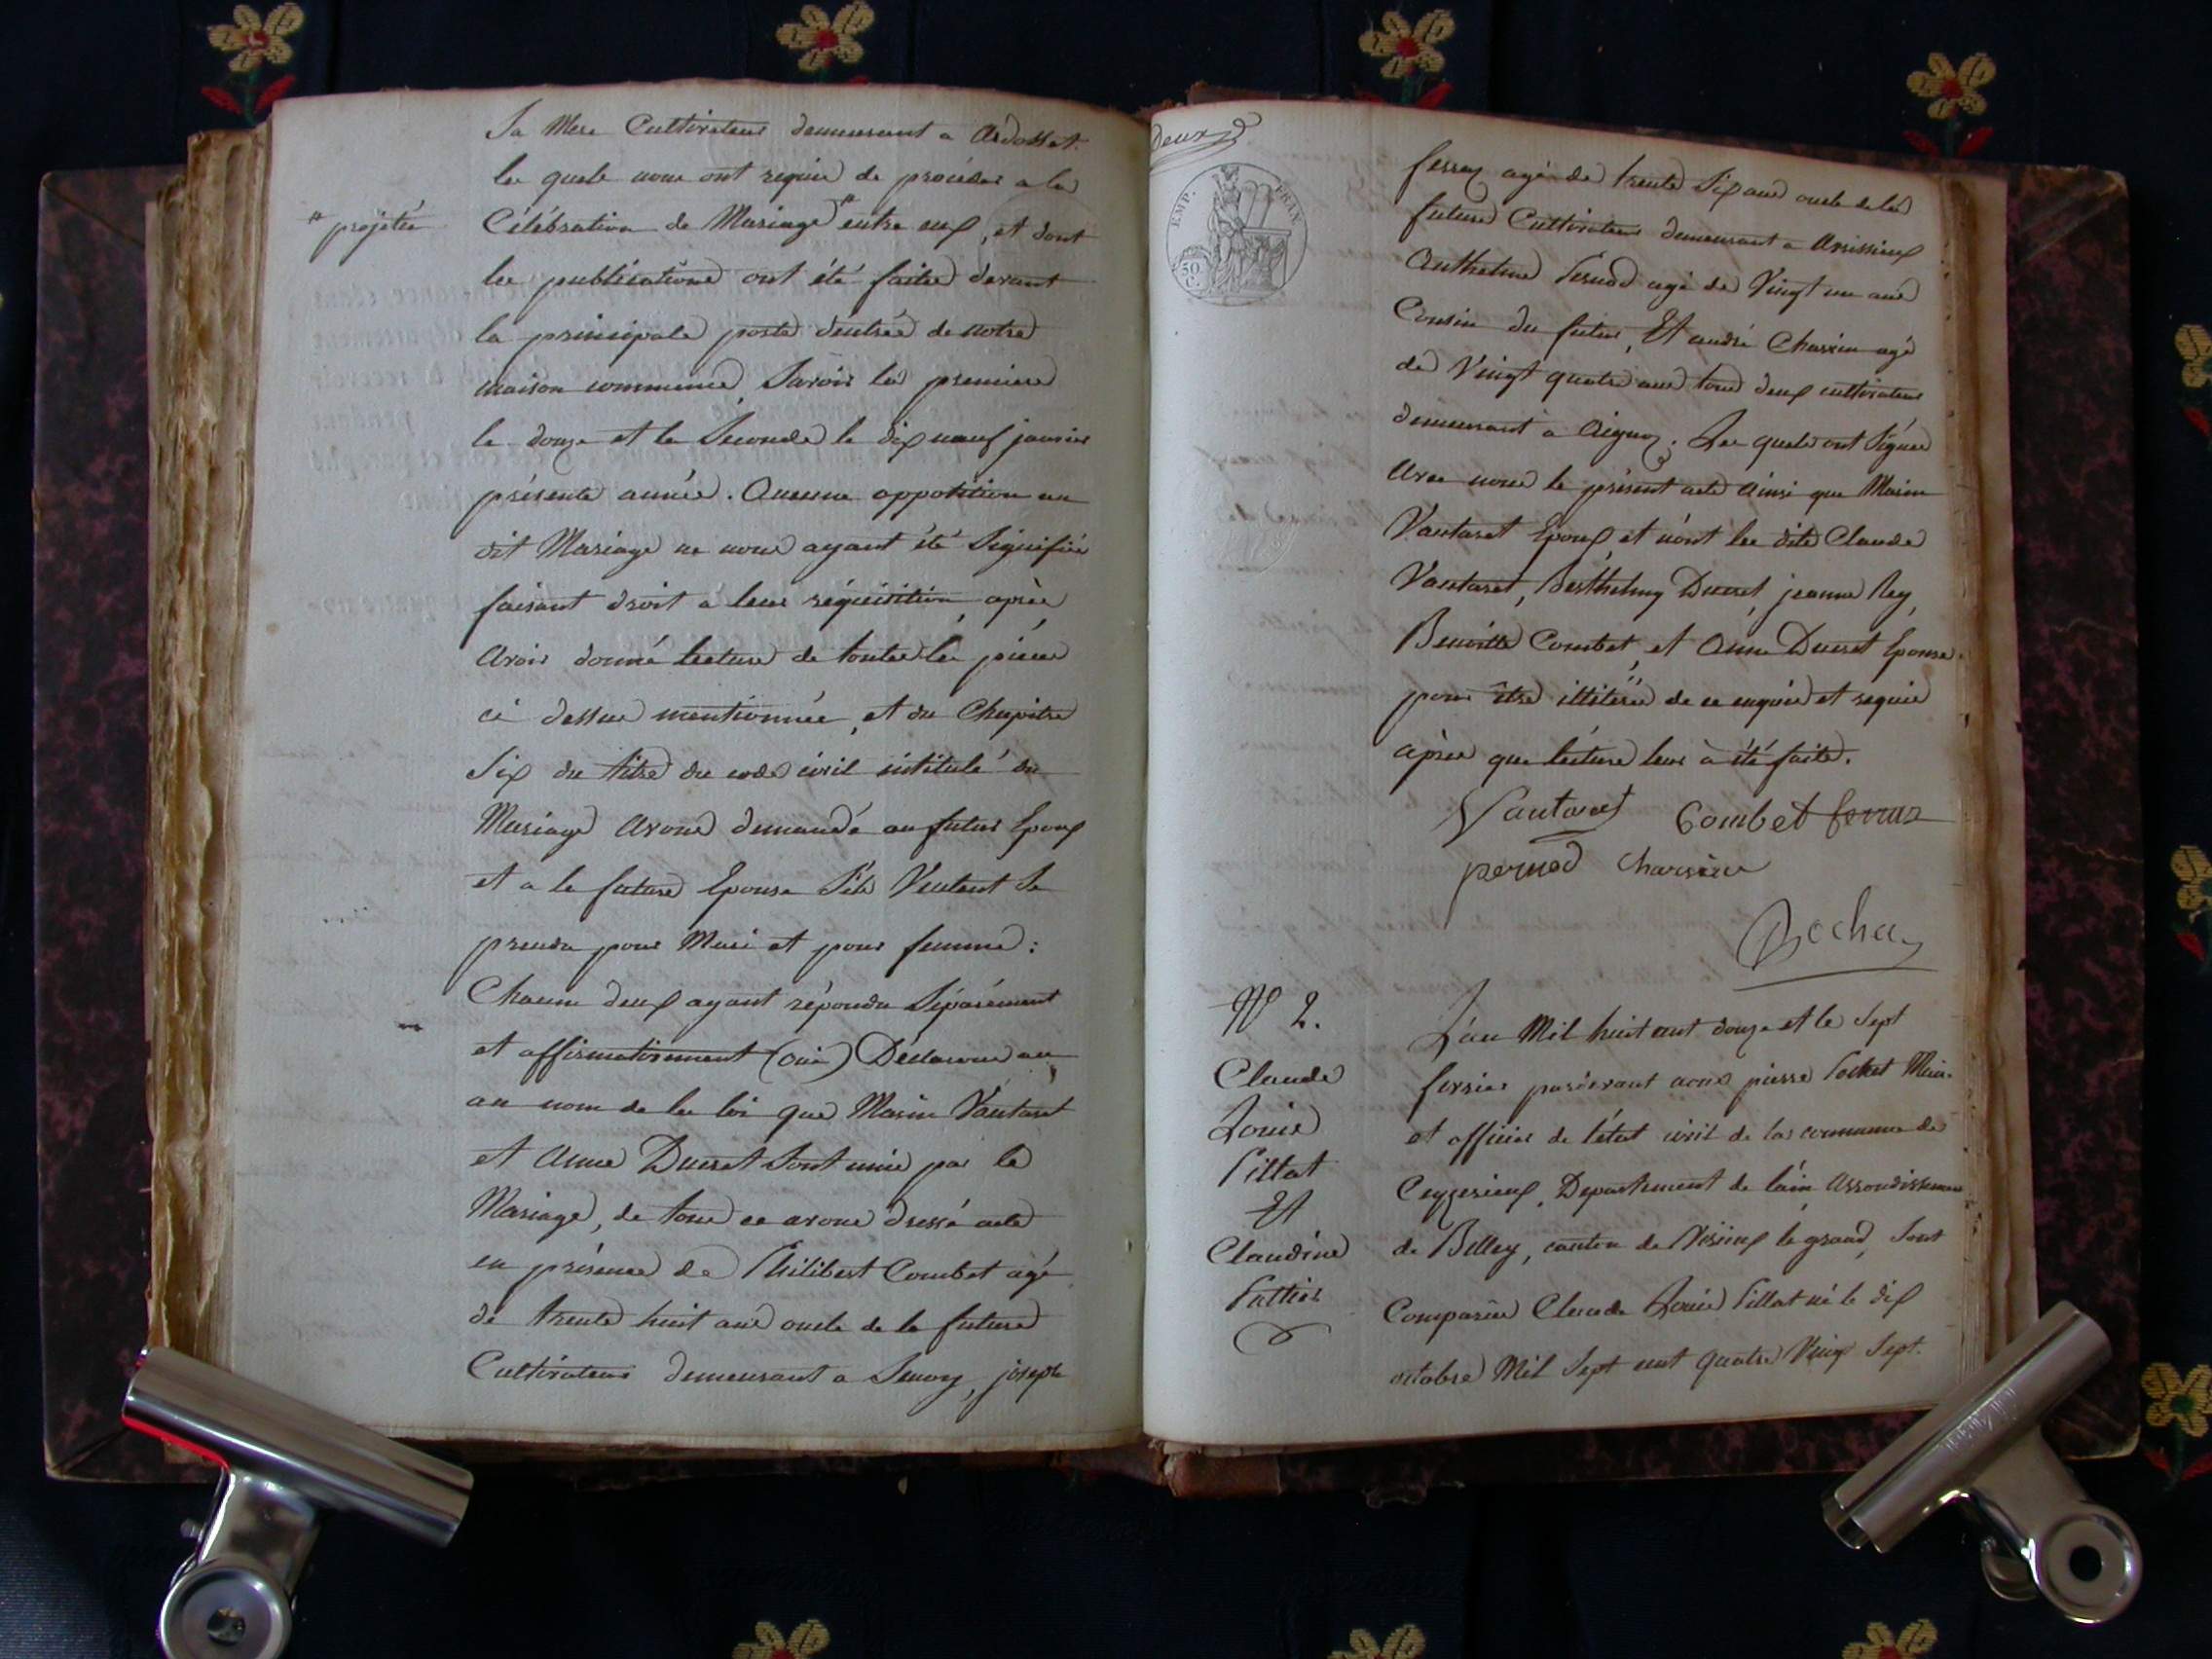 Sa Mere Cultivateurs demeurant a Ardosset.
les quels nous ont requis de procéder a la
# projetée
Célébration de Mariage # entre eux, et dont
les publications ont été faites devant
la principale porte d'entrée de notre
maison commune, Savoir la premiere
le douze et la Seconde le dix neuf janvier
présente année. Aucune opposition au
dit Mariage ne nous ayant été Signifiée
faisant droit a leur réquisition, après
Avoir donné lecture de toutes les pièces
ci dessus mentionnées, et du Chapitre
Six du titre du code civil intitulé du
Mariage Avons demandé au futur Epoux
et a la future Epouse S'ils Veulent Se
prendre pour Mari et pour femme :
Chacun d'eux ayant répondu Séparément
et affirmativement (oui) Déclarons au
au nom de la loi que Marin Vautaret
et Anne Ducret Sont unis par le
Mariage, de tous ce avons dressé acte
en présence de Philibert Combet agé
de trente huit ans oncle de la future
Cultivateur demeurant a Senoy, joseph
Deux
TEMP. FRAN
50 C.
ferraz agé de trente Six ans oncle de la
future Cultivateur demeurant a Avrissieux
Anthelme Pernod agé de Vingt un ans
Cousin du futur, Et andré Charvin agé
de Vingt quatre ans tous deux cultivateurs
demeurant à Aignoz. Les quels ont Signés
Avec nous le présent acte Ainsi que Marin
Vautaret Epoux, et n'ont les dits Claude
Vautaret, Berthelmy Ducret, jeanne Rey,
Benoitte Combet, et Anne Ducret Epouse
pour être illiterés de ce enquis et requis
après que lecture leur à été faite.
Vautaret Combet ferraz
pernod Charvin
Rochaz
N° 2.
Claude
Louis
Pillat
Et
Claudine
Pattier
L'an Mil huit cent douze et le Sept
fevrier pardevant nous pierre Maire
et officier de l'état civil de la commune de
Ceyzerieux, Departement de l'ain Arrondissement
de Belley, canton de Virieux le grand, Sont
Comparus Claude Louis Pillat né le dix
octobre Mil Sept cent quatre Vingt Sept.